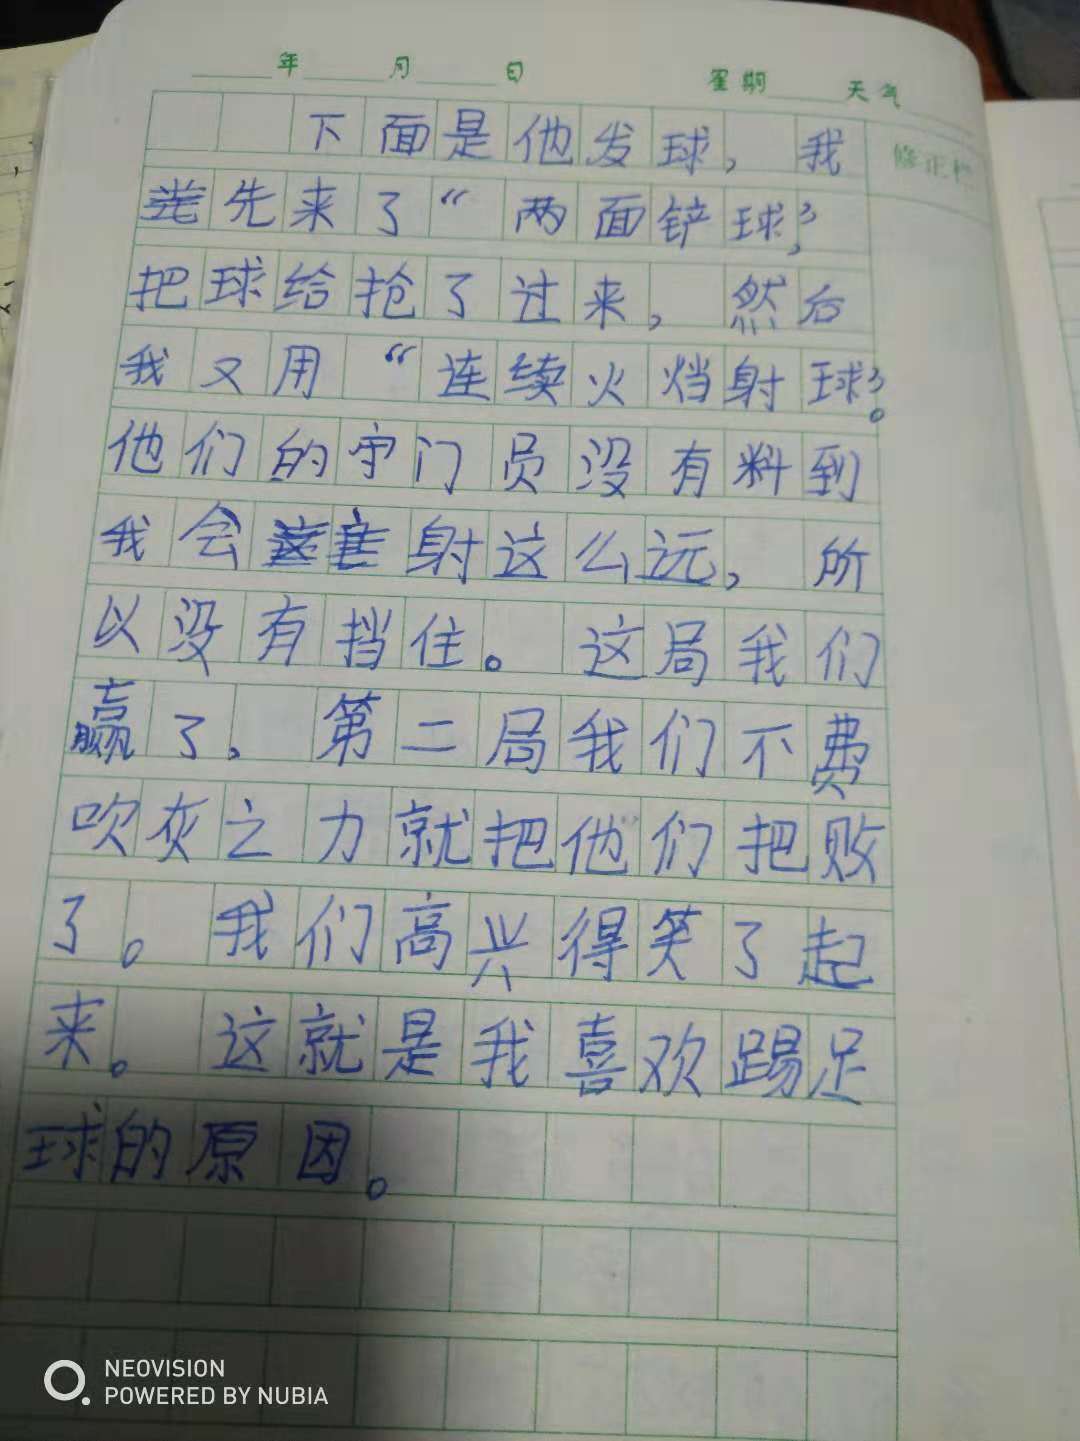 年 月 日 星期 天气
修正栏
下面是他发球，我
先来了“两面铲球”，
把球给抢了过来，然后
我又用“连续火挡射球”。
他们的守门员没有料到
我会射这么远，所
以没有挡住。这局我们
赢了，第二局我们不费
吹灰之力就把他们把败
了。我们高兴得笑了起
来。这就是我喜欢踢足
球的原因。
NEOVISION
POWERED BY NUBIA